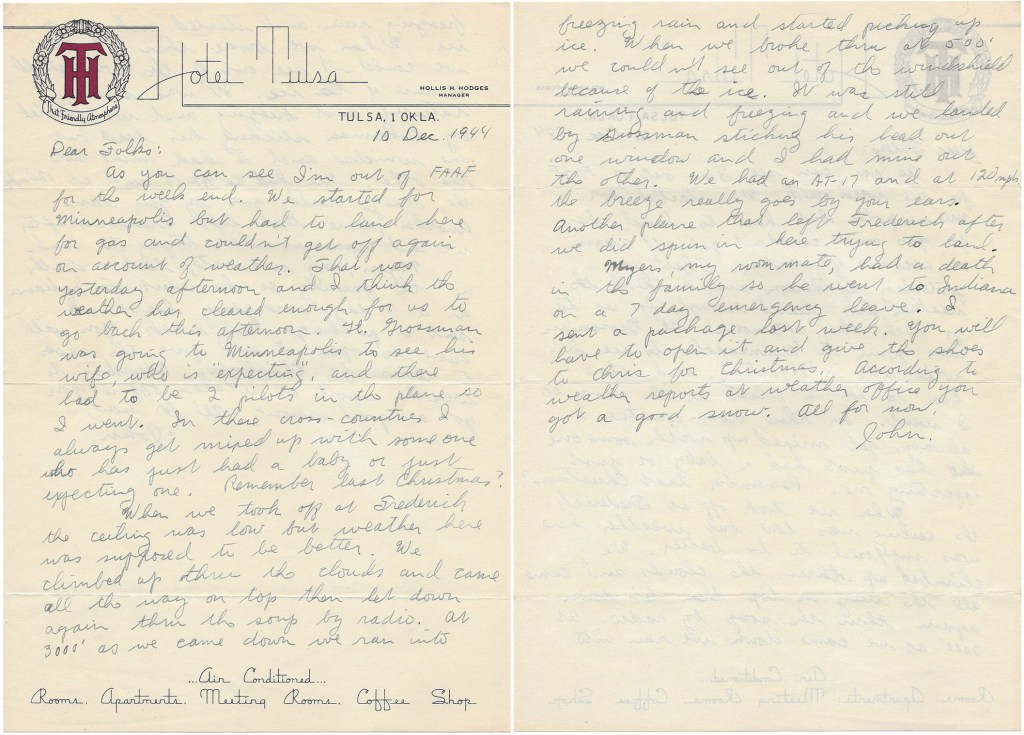 HT
That Friendly Atmosphere
Hotel Tulsa
HOLLIS H. HODGES
MANAGER
TULSA, 1 OKLA.
10 Dec. 1944
Dear Folks:
As you can see I'm out of FAAF
for the week end. We started for
Minneapolis but had to land here
for gas and couldn't get off again
on account of weather. That was
yesterday afternoon and I think the
weather has cleared enough for us to
go back this afternoon. Lt. Grossman
was going to Minneapolis to see his
wife, who is "expecting", and there
had to be 2 pilots in the plane so
I went. In these cross-countries I
always get mixed up with some one
who has just had a baby or just
expecting one. Remember last Christmas?
When we took off at Frederick
the ceiling was low but weather here
was supposed to be better. We
climbed up thru the clouds and came
all the way on top then let down
again thru the soup by radio. At
3000' as we came down we ran into
...Air Conditioned...
Rooms. Apartments. Meeting Rooms. Coffee Shop
freezing rain and started picking up
ice. When we broke thru at 500'
we couldn't see out of the windshield
because of the ice. It was still
raining and freezing and we landed
by Grossman sticking his head out
one window and I had mine out
the other. We had an AT-17 and at 120 mph
the breeze really goes by your ears.
Another plane that left Frederick after
we did spun in here trying to land.
Myers, my roommate, had a death
in the family so he went to Indiana
on a 7 day emergency leave. I
sent a package last week. You will
have to open it and give the shoes
to Chris for Christmas. According to
weather reports at weather office you
got a good snow. All for now.
John.